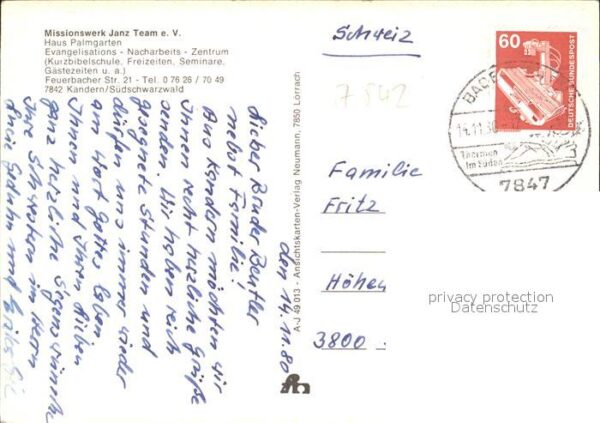 Missionswerk Janz Team e. V.
Haus Palmgarten
Evangelisations - Nacharbeits - Zentrum
(Kurzbibelschule, Freizeiten, Seminare,
Gästezeiten u. a.)
Feuerbacher Str. 21 - Tel. 0 76 26 / 70 49
7842 Kandern/Südschwarzwald
den 14.11.80
Lieber Bruder
nebst Familie!
Aus Kandern möchten wir
Ihnen recht herzliche Grüße
senden. Wir haben reich
gesegnete Stunden und
dürfen uns immer wieder
am Wort Gottes laben.
Ihnen und Ihren Lieben
ganz herzliche Segenswünsche
Ihre Schwestern im Herrn
A-J 49 013 - Ansichtskarten-Verlag Neumann, 7850 Lörrach
Schweiz
7842
Familie
Fritz
Höhen
3800
60
DEUTSCHE BUNDESPOST
BADE
14.11.80
im Süden
7847
privacy protection
Datenschutz